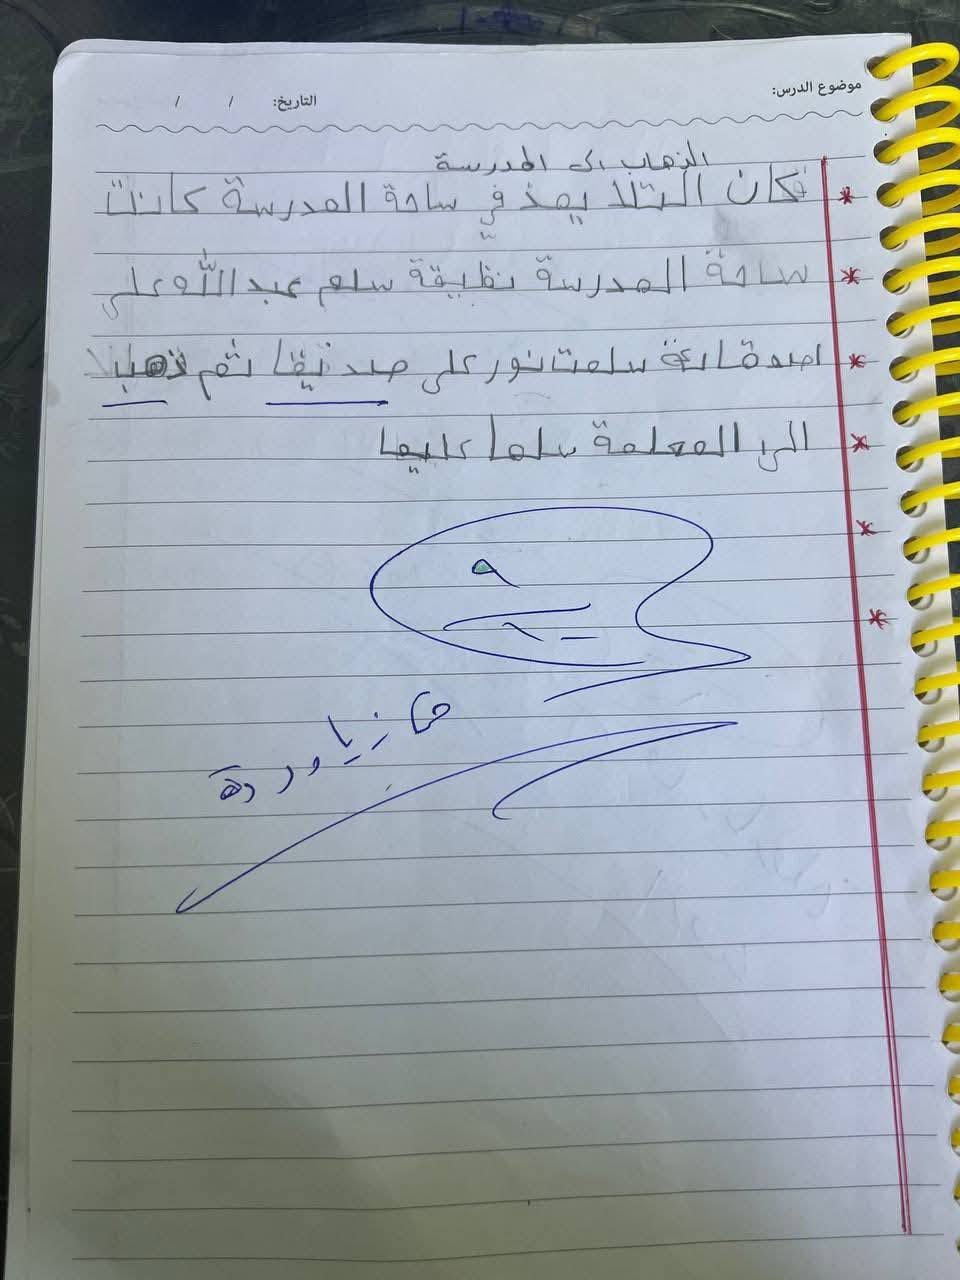 موضوع الدرس: التاريخ: / /
الذهاب الى المدرسة
فكان التلا يمذ في ساحة المدرسة كانت
ساحة المدرسة نظيقة سلم عبد الله على
اصدقائة سلمت نور على صد تيقا ثم ذهبا
الى المعلمة سلما عليما
٩
١٠
يا وردة